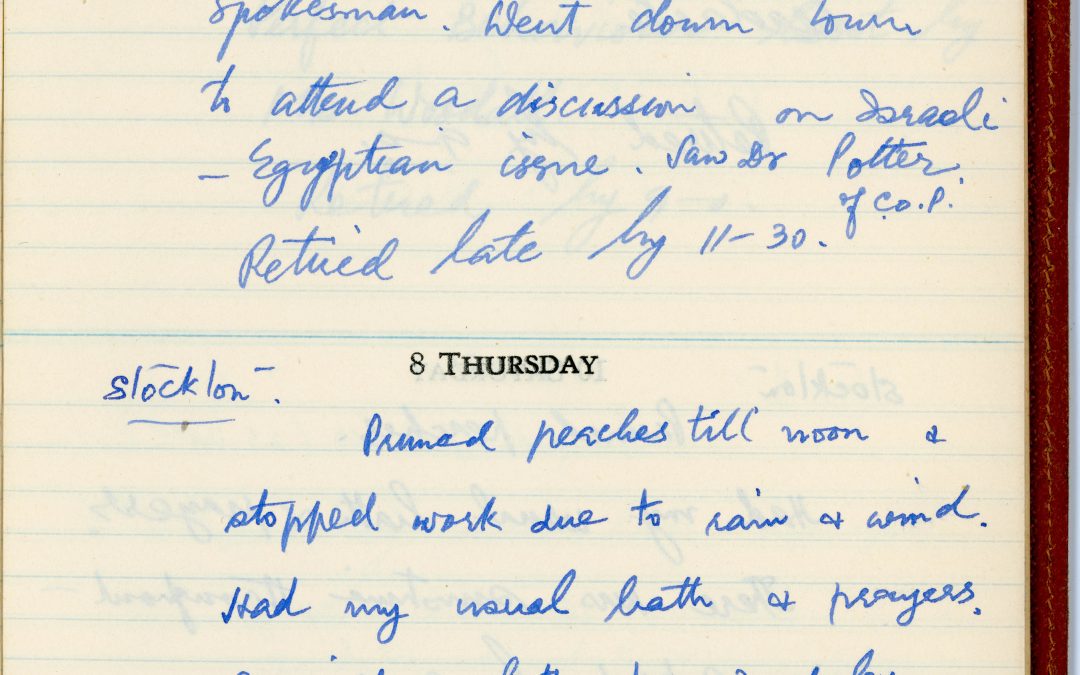 spokesman. Went down town
to attend a discussion on Israeli
- Egyptian issue. Saw Dr Potter
of C.O.P.
Retired late by 11-30.
8 THURSDAY
Stockton-.
Pruned peaches till noon &
stopped work due to rain & wind.
Had my usual bath & prayers.